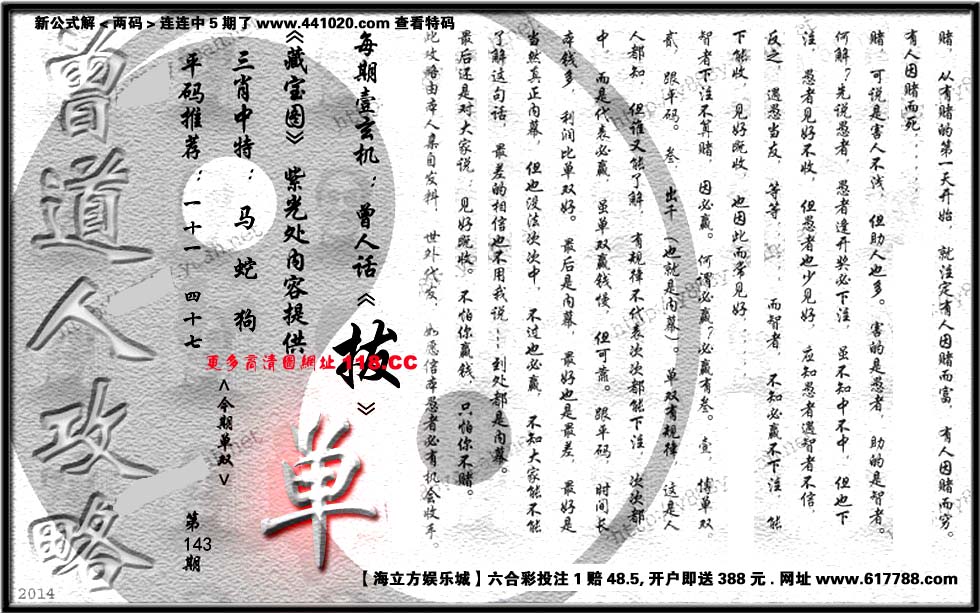 新公式解<两码>连连中5期了 www.441020.com 查看特码
赌，从有赌的第一天开始，就注定有人因赌而富，有人因赌而穷。
有人因赌而死......
赌，可说是害人不浅，但助人也多。害的是愚者，助的是智者。
何解？先说愚者，愚者逢开奖必下注，虽不知中不中，但也下
注，愚者见好不收，但愚者也少见好，应知愚者遇智者不信，
反之，遇愚当友，等等......而智者，不知必赢不下注，能
下能收，见好既收，也因此而常见好......
智者下注不算赌，因必赢。何谓必赢？必赢有叁。壹，博单双。
贰，跟平码。叁，出千（也就是内幕）。单双有规律，这是人
人都知，但谁又能了解，有规律不代表次次都能下注，次次都
中，而是代表必赢，虽单双赢钱慢，但可靠。跟平码，时间长
本钱多，利润比单双好。最后是内幕，最好也是最差，最好是
当然真正内幕，但也没法次次中，不过也必赢，不知大家能不能
了解这句话，最差的相信也不用我说......到处都是内幕。
最后还是对大家说：见好既收。不怕你赢钱，只怕你不赌。
此攻略由本人亲自发料，世外代友，如愿信本愚者必有机会收丰。
每期壹玄机：曾人话《拔》
《藏宝图》紫光处内容提供
三肖中特：马 蛇 狗
平码推荐：一十一 四十七
<今期单双>
单
第143期
曾道人攻略
更多高清圖網址 118.CC
【海立方娱乐城】六合彩投注1赔48.5,开户即送388元.网址www.617788.com
2014